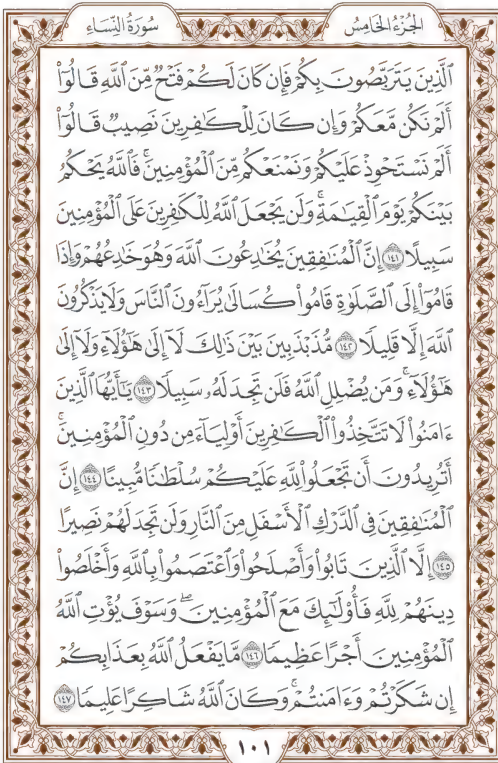 الجُزْءُ الخَامِسُ
سُورَةُ النِّسَاءِ
ٱلَّذِينَ يَتَرَبَّصُونَ بِكُمْ فَإِن كَانَ لَكُمْ فَتْحٌ مِّنَ ٱللَّهِ قَالُوٓاْ
أَلَمْ نَكُن مَّعَكُمْ وَإِن كَانَ لِلْكَٰفِرِينَ نَصِيبٌ قَالُوٓاْ
أَلَمْ نَسْتَحْوِذْ عَلَيْكُمْ وَنَمْنَعْكُم مِّنَ ٱلْمُؤْمِنِينَۚ فَٱللَّهُ يَحْكُمُ
بَيْنَكُمْ يَوْمَ ٱلْقِيَٰمَةِۚ وَلَن يَجْعَلَ ٱللَّهُ لِلْكَٰفِرِينَ عَلَى ٱلْمُؤْمِنِينَ
سَبِيلًا ١٤١ إِنَّ ٱلْمُنَٰفِقِينَ يُخَٰدِعُونَ ٱللَّهَ وَهُوَ خَٰدِعُهُمْ وَإِذَا
قَامُوٓاْ إِلَى ٱلصَّلَوٰةِ قَامُواْ كُسَالَىٰ يُرَآءُونَ ٱلنَّاسَ وَلَا يَذْكُرُونَ
ٱللَّهَ إِلَّا قَلِيلًا ١٤٢ مُّذَبْذَبِينَ بَيْنَ ذَٰلِكَ لَآ إِلَىٰ هَٰٓؤُلَآءِ وَلَآ إِلَىٰ
هَٰٓؤُلَآءِۚ وَمَن يُضْلِلِ ٱللَّهُ فَلَن تَجِدَ لَهُۥ سَبِيلًا ١٤٣ يَٰٓأَيُّهَا ٱلَّذِينَ
ءَامَنُواْ لَا تَتَّخِذُواْ ٱلْكَٰفِرِينَ أَوْلِيَآءَ مِن دُونِ ٱلْمُؤْمِنِينَۚ
أَتُرِيدُونَ أَن تَجْعَلُواْ لِلَّهِ عَلَيْكُمْ سُلْطَٰنًا مُّبِينًا ١٤٤ إِنَّ
ٱلْمُنَٰفِقِينَ فِي ٱلدَّرْكِ ٱلْأَسْفَلِ مِنَ ٱلنَّارِ وَلَن تَجِدَ لَهُمْ نَصِيرًا
١٤٥ إِلَّا ٱلَّذِينَ تَابُواْ وَأَصْلَحُواْ وَٱعْتَصَمُواْ بِٱللَّهِ وَأَخْلَصُواْ
دِينَهُمْ لِلَّهِ فَأُوْلَٰٓئِكَ مَعَ ٱلْمُؤْمِنِينَۖ وَسَوْفَ يُؤْتِ ٱللَّهُ
ٱلْمُؤْمِنِينَ أَجْرًا عَظِيمًا ١٤٦ مَّا يَفْعَلُ ٱللَّهُ بِعَذَابِكُمْ
إِن شَكَرْتُمْ وَءَامَنتُمْۚ وَكَانَ ٱللَّهُ شَاكِرًا عَلِيمًا ١٤٧
١٠١